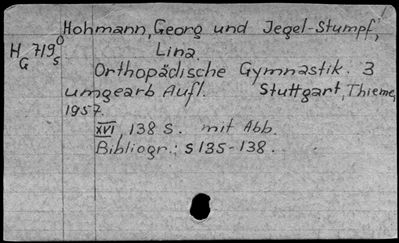 Hohmann, Georg und Jegel-Stumpf,
HG 719 05 Lina.
Orthopädische Gymnastik. 3
umgearb Aufl. Stuttgart, Thieme,
1957.
XVI, 138 S. mit Abb.
Bibliogr.: S 135-138.